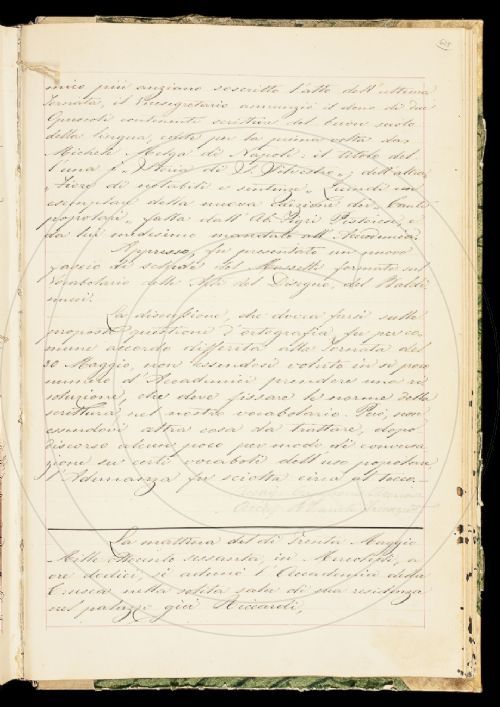 mico più anziano soscritto l'atto dell'ultima
tornata, il Vicesegretario annunziò il dono di due
Opuscoli contenenti scritture del buon secolo
della lingua, edite per la prima volta da
Michele Melga di Napoli: il titolo del
l'una è "Storia di S. Silvestro"; dell'altra,
"Fiore di notabili e sentenze". Quindi un
esemplare della nuova Edizione dei "Canti
popolari" fatta dall'Ab. Tigri Pistoiese, e
da lui medesimo mandato all'Accademia.
Appresso, fu presentato un nuovo
fascio di schede del Masselli formato sul
Vocabolario delle Arti del Disegno, del Baldi
nucci.
La discussione, che dovea farsi sulle
proposte questioni d'ortografia, fu per co
mune accordo differita alla tornata del
30 Maggio, non essendosi voluto in sì poco
numero d'Accademici prendere una ri
soluzione, che deve fissare le norme della
scrittura nel nostro vocabolario. Però, non
essendovi altra cosa da trattare, dopo
discorso alcun poco per modo di conversa
zione su certi vocaboli dell'uso popolare
l'Adunanza fu sciolta circa al tocco.
La mattina del dì Trenta Maggio
Mille ottocento sessanta, in Mercoledì, a
ore dodici, si adunò l'Accademia della
Crusca nella solita sala di sua residenza
nel palazzo già Riccardi,